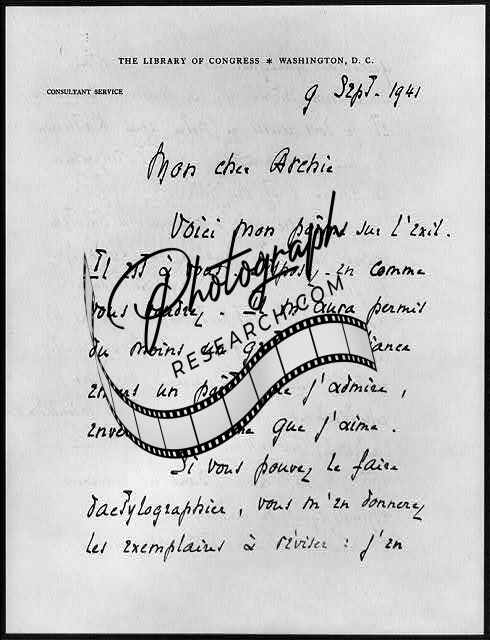 THE LIBRARY OF CONGRESS * WASHINGTON, D. C.
CONSULTANT SERVICE
9 Sept. 1941
Mon cher Archie
Voici mon poème sur l'Exil.
Il est à vous. en comme
vous permis
du moins
un j'admire,
que j'aime.
Si vous pouvez le faire
dactylographier, vous m'en donnerez
les exemplaires à réviser : j'en
Photograph
RESEARCH.COM